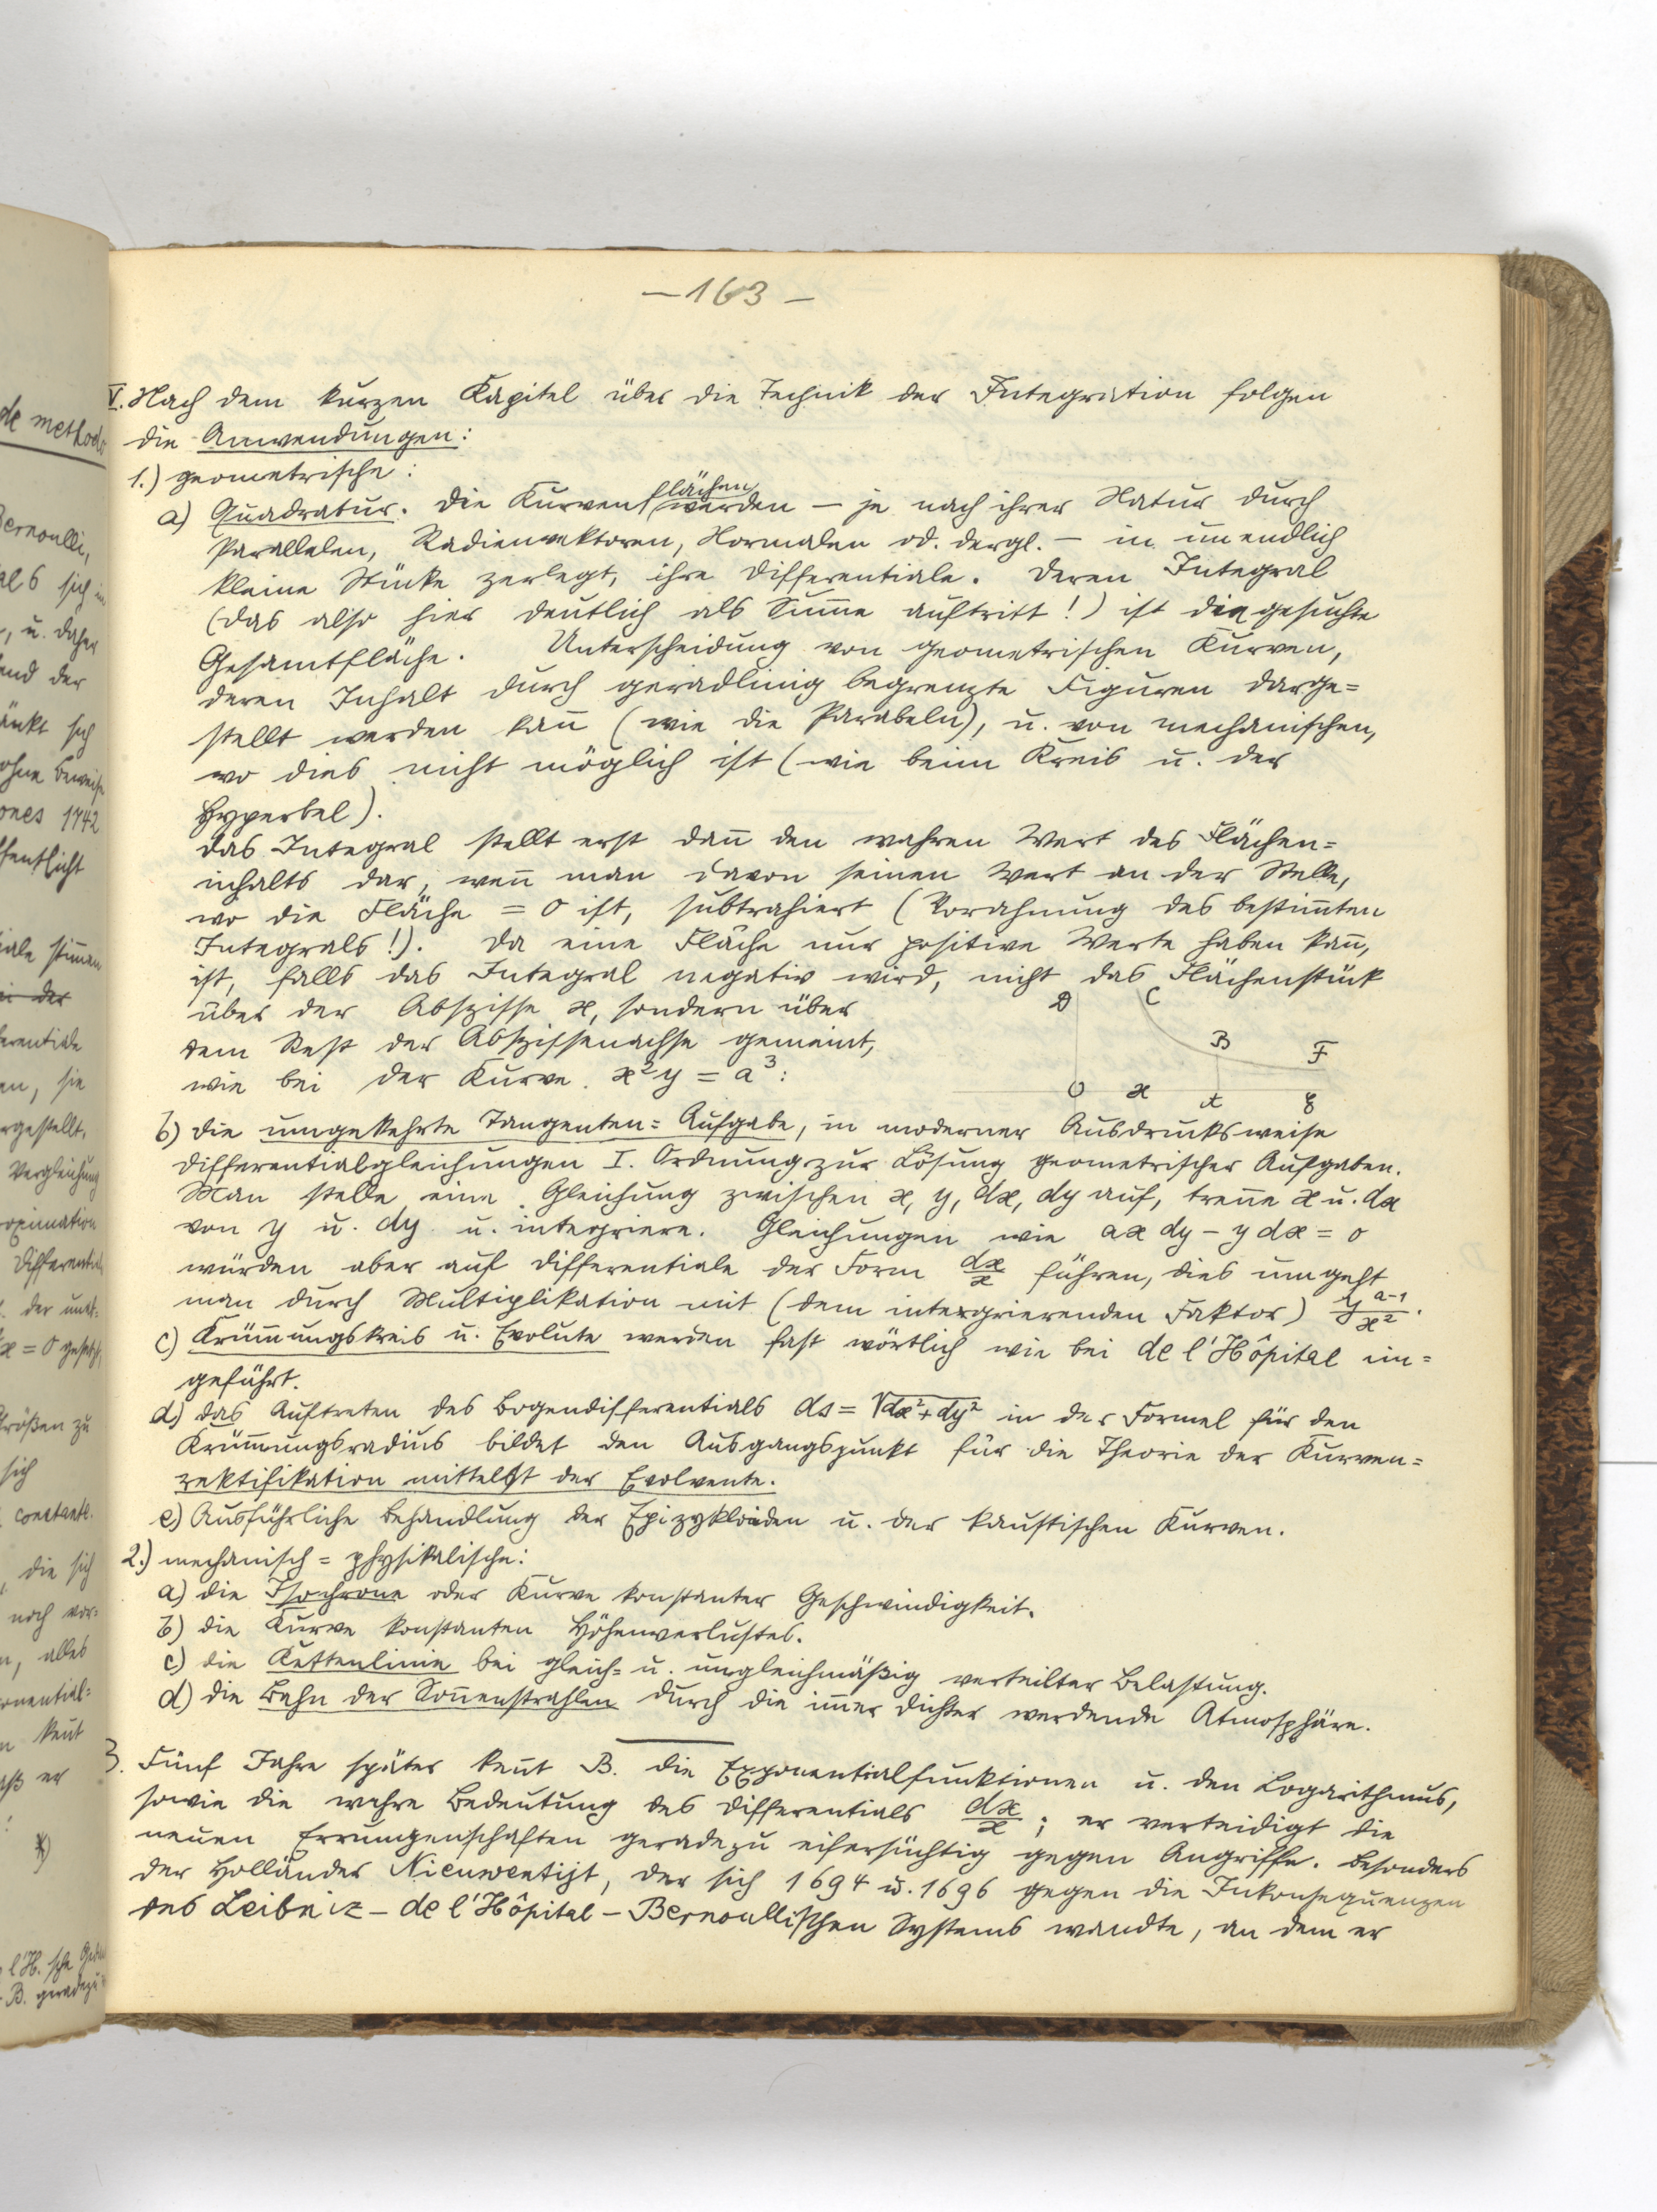 — 163 —
V. Nach dem kurzen Kapitel über die Technik der Integration folgen
die Anwendungen:
1.) geometrische:
a) Quadratur. Die Kurvenflächen werden – je nach ihrer Natur durch
Parallelen, Radienvektoren, Normalen od. dergl. – in unendlich
kleine Stücke zerlegt, ihre Differentiale. Deren Integral
(das also hier deutlich als Summe auftritt!) ist die gesuchte
Gesamtfläche. Unterscheidung von geometrischen Kurven,
deren Inhalt durch geradlinig begrenzte Figuren darge=
stellt werden kann (wie die Parabeln), u. von mechanischen,
wo dies nicht möglich ist (wie beim Kreis u. der
Hyperbel).
Das Integral stellt erst dann den wahren Wert des Flächen=
inhalts dar, wenn man davon seinen Wert an der Stelle,
wo die Fläche = 0 ist, subtrahiert (Vorahnung des bestimmten
Integrals!). Da eine Fläche nur positive Werte haben kann,
ist, falls das Integral negativ wird, nicht das Flächenstück
über der Abszisse x, sondern über
dem Rest der Abszissenachse gemeint,
wie bei der Kurve x²y = a³:
D C
B F
O x A E
b) die umgekehrte Tangenten=Aufgabe, in moderner Ausdrucksweise
Differentialgleichungen I. Ordnung zur Lösung geometrischer Aufgaben.
Man stelle eine Gleichung zwischen x, y, dx, dy auf, trenne x u. dx
von y u. dy u. integriere. Gleichungen wie ax dy – y dx = 0
würden aber auf Differentiale der Form dx/x führen, dies umgeht
man durch Multiplikation mit (dem integrierenden Faktor) y^(a-1)/x².
c) Krümmungskreis u. Evolute werden fast wörtlich wie bei de l'Hôpital ein=
geführt.
d) das Auftreten des Bogendifferentials ds = √dx²+dy² in der Formel für den
Krümmungsradius bildet den Ausgangspunkt für die Theorie der Kurven=
rektifikation mittelst der Evolvente.
e) Ausführliche Behandlung der Epizykloiden u. der kaustischen Kurven.
2.) mechanisch=physikalische:
a) die Isochrone oder Kurve konstanter Geschwindigkeit.
b) die Kurve konstanten Höhenverlustes.
c) die Kettenlinie bei gleich= u. ungleichmäßig verteilter Belastung.
d) die Bahn der Sonnenstrahlen durch die immer dichter werdende Atmosphäre.
3. Fünf Jahre später kennt B. die Exponentialfunktionen u. den Logarithmus,
sowie die wahre Bedeutung des Differentials dx/x; er verteidigt die
neuen Errungenschaften geradezu eifersüchtig gegen Angriffe. Besonders
der Holländer Nieuwentijt, der sich 1694 u. 1696 gegen die Inkonsequenzen
des Leibniz – de l'Hôpital – Bernoullischen Systems wandte, an dem er